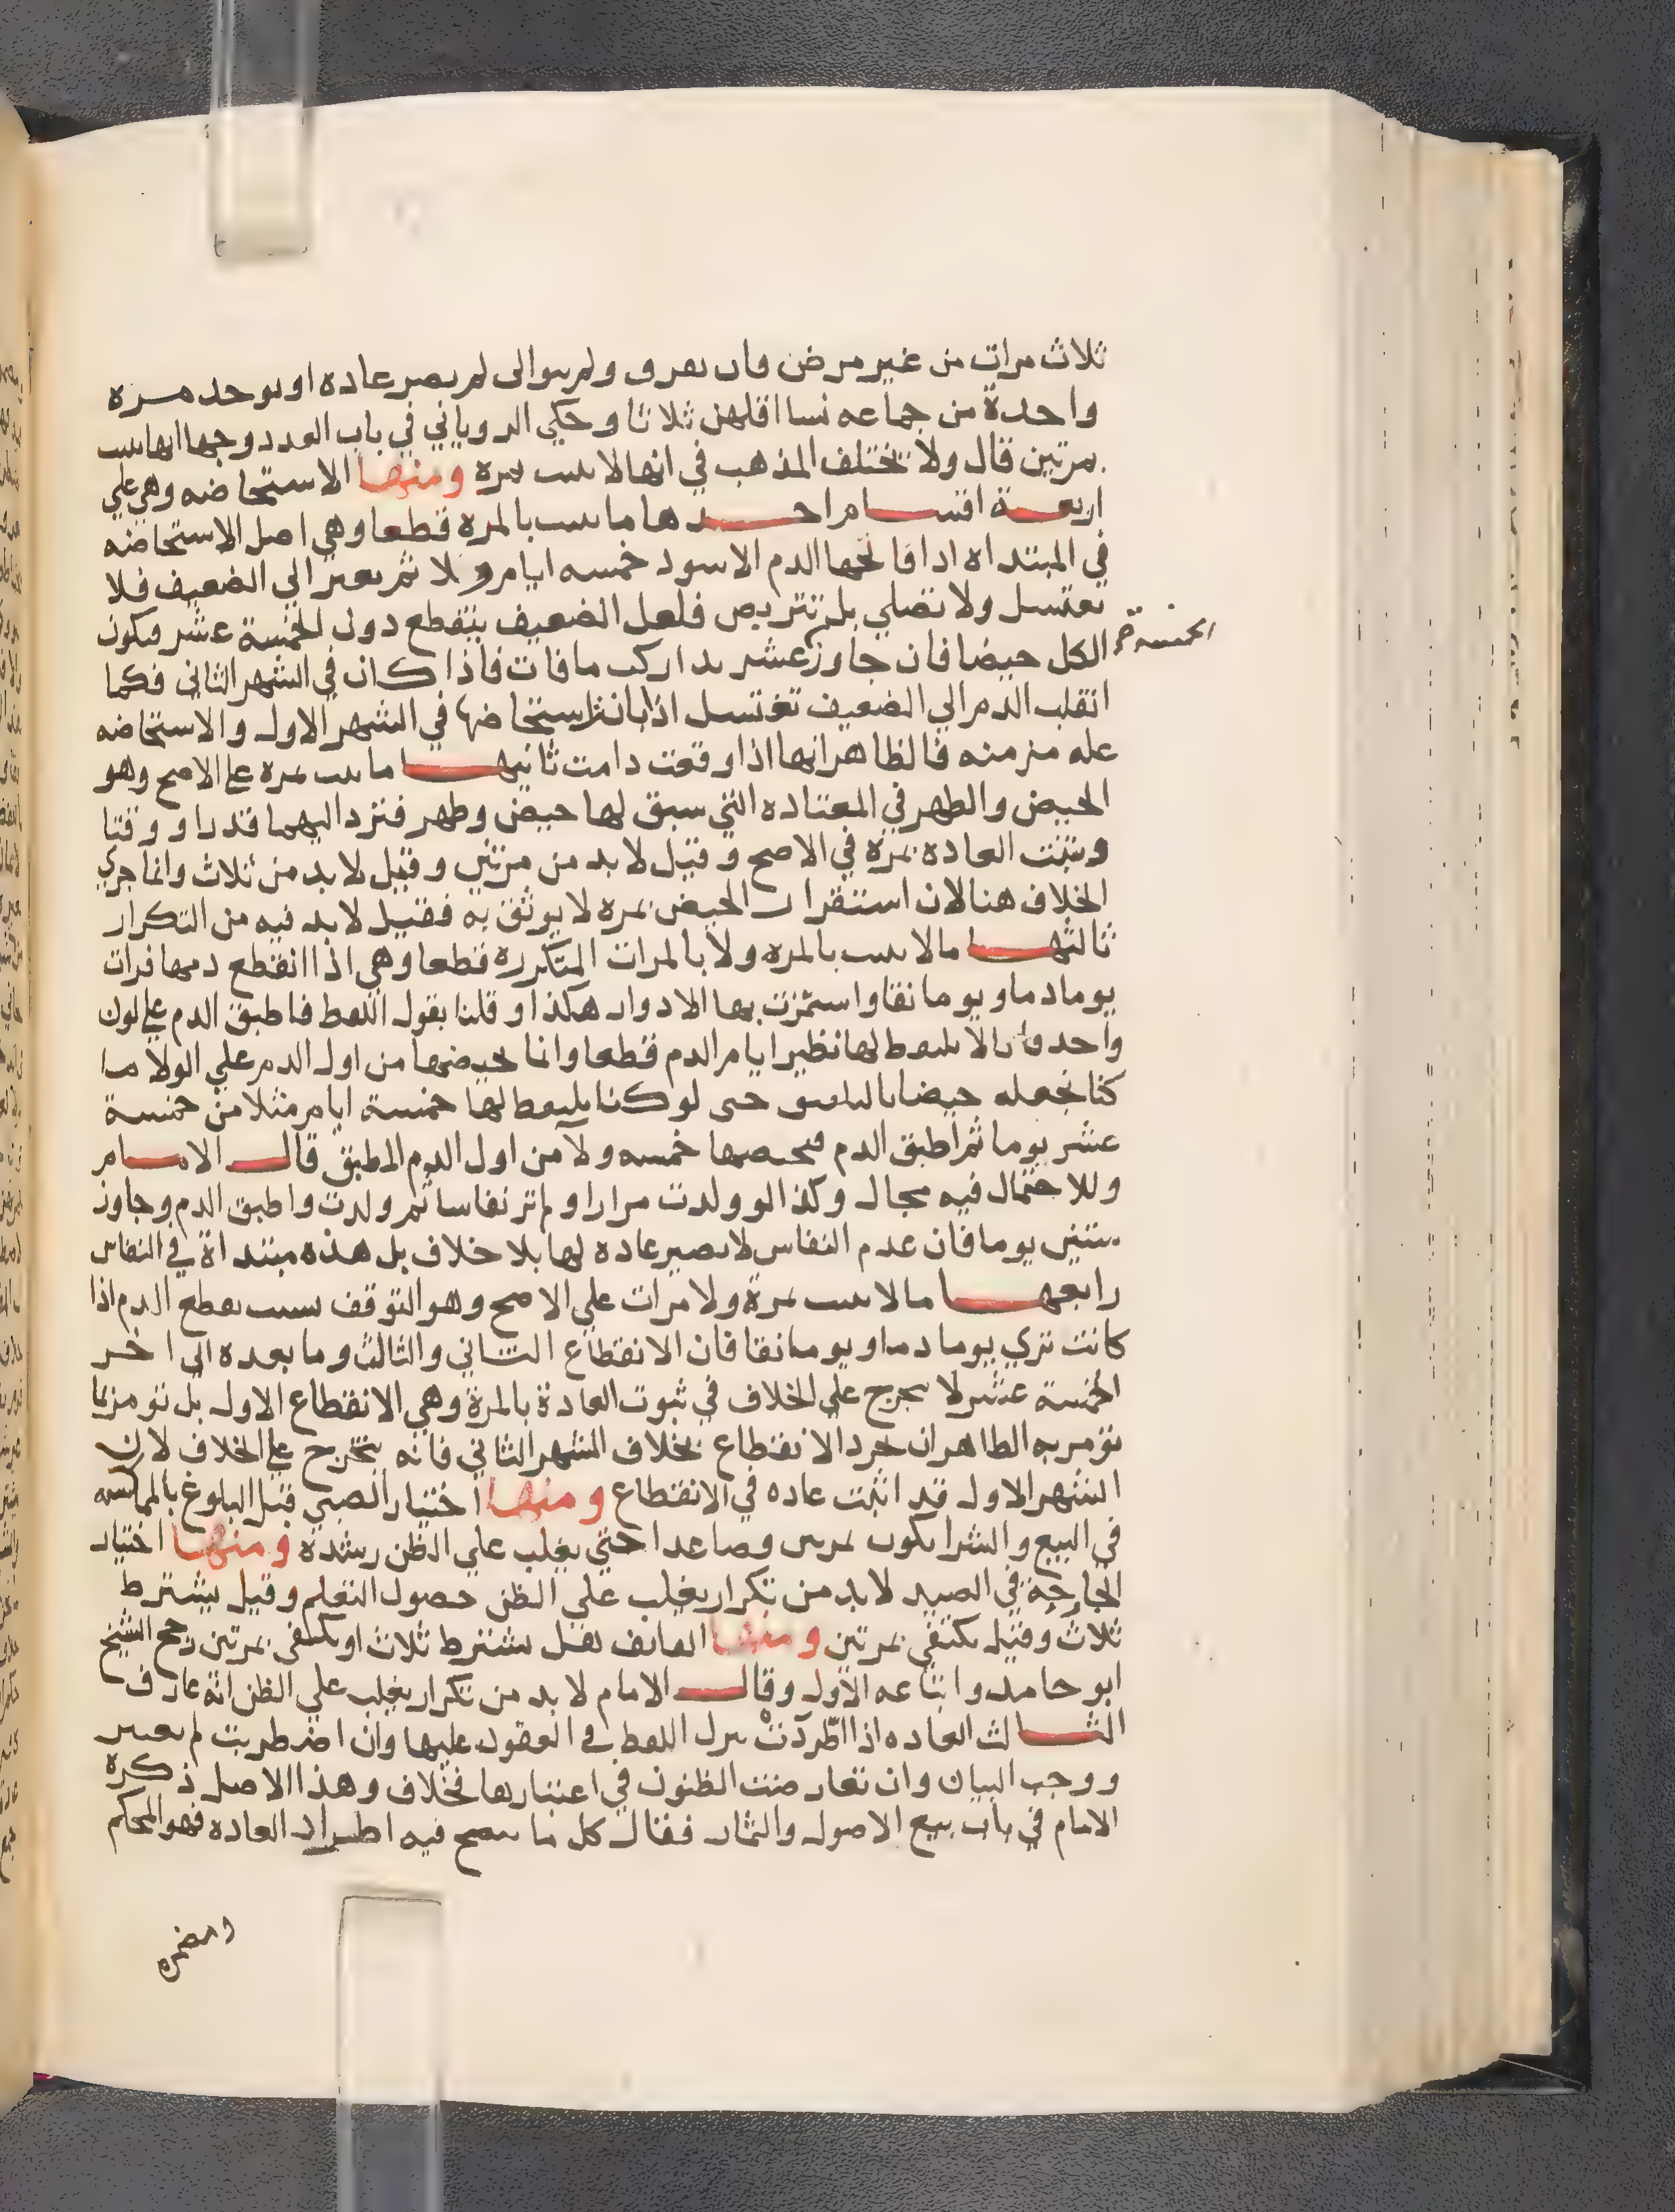 ثلاث مرات من غير مرض فان تفرق ولم يتوالى لم يصر عاده او يوجد مره
واحدة من جماعه نسا اقلهن ثلاثا وحكي الروياني في باب العدد وجها انها تثبت
بمرتين قال ولا يختلف المذهب في انها لا تثبت بمره ومنها الاستحاضه وهي علي
اربعة اقسام احدها ما يثبت بالمره قطعا وهي اصل الاستحاضه
في المبتداه اذا فاتحها الدم الاسود خمسه ايام ولا ثم يعبر الي الضعيف فلا
تغتسل ولا تصلي بل تتربص فلعل الضعيف ينقطع دون الخمسة عشر فيكون
الكل حيضا فان جاوز عشر تداركت ما فات فاذا كان في الشهر الثاني فكما
الخمسة
انقلب الدم الي الضعيف تغتسل اذا بانت استحاضتها في الشهر الاول والاستحاضه
عله مزمنه فالظاهر انها اذا وقعت دامت ثانيها ما يثبت بمره علي الاصح وهو
الحيض والطهر في المعتاده التي سبق لها حيض وطهر فترد اليهما قدرا ووقتا
وتثبت العاده بمرة في الاصح وقيل لا بد من مرتين وقيل لا بد من ثلاث وانما جري
الخلاف هنا لان استقرار الحيض بمره لا يوثق به فقيل لا بد فيه من التكرار
ثالثها ما لا يثبت بالمره ولا بالمرات المتكررة قطعا وهي اذا انقطع دمها فرات
يوما دما ويوما نقا واستمرت بها الادوار هكذا وقلنا بقول اللقط فاطبق الدم علي لون
واحد فانا لا نلتقط لها نظير ايام الدم قطعا وانما نحيضها من اول الدم علي الولا ما
كنا نجعله حيضا بالتلفيق حتى لو كنا نلتقط لها خمسة ايام مثلا من خمسة
عشر يوما ثم اطبق الدم فنحيضها خمسه ولآ من اول الدم المطبق قال الامام
وللاحتمال فيه مجال وكذا لو ولدت مرارا ولم تر نفاسا ثم ولدت واطبق الدم وجاوز
ستين يوما فان عدم النفاس لا يصير عاده لها بلا خلاف بل هذه مبتداة في النفاس
رابعها ما لا يثبت بمرة ولا مرات علي الاصح وهو التوقف بسبب تقطع الدم اذا
كانت تري يوما دما ويوما نقا فان الانقطاع الثاني والثالث وما بعده الي اخر
الخمسة عشر لا يخرج علي الخلاف في ثبوت العادة بالمرة وهي الانقطاع الاول بل تومر بما
تؤمر به الطاهر ان مجرد الانقطاع بخلاف الشهر الثاني فانه يتخرج علي الخلاف لان
الشهر الاول قد اثبت عاده في الانقطاع ومنها اختبار الصبي قبل البلوغ بالمماكسه
في البيع والشرا يكون بمرتين وصاعدا حتي يغلب علي الظن رشده ومنها اختبار
الجارحة في الصيد لا بد من تكرار يغلب علي الظن حصول التعلم وقيل يشترط
ثلاث وقيل يكتفي بمرتين ومنها القائف فقيل يشترط ثلاث او يكتفي بمرتين رجح الشيخ
ابو حامد واتباعه الاول وقال الامام لا بد من تكرار يغلب علي الظن انه عارف
الثالث العاده اذا اطردت ينزل اللفظ في العقود عليها وان اضطربت لم يعتبر
ووجب البيان وان تعارضت الظنون في اعتبارها فخلاف وهذا الاصل ذكره
الامام في باب بيع الاصول والثمار فقال كل ما يصح فيه اطراد العاده فهو المحكم
ومضمره